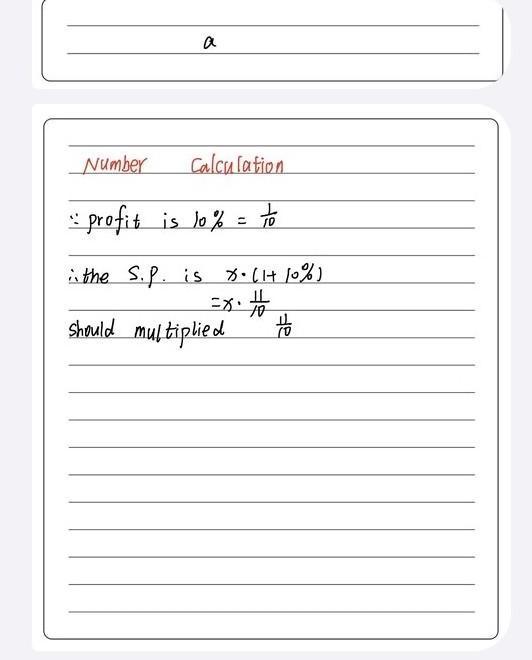 a
Number Calculation
∵ profit is 10% = 1/10
∴ the S.P. is x·(1+10%)
=x· 11/10
should multiplied 11/10